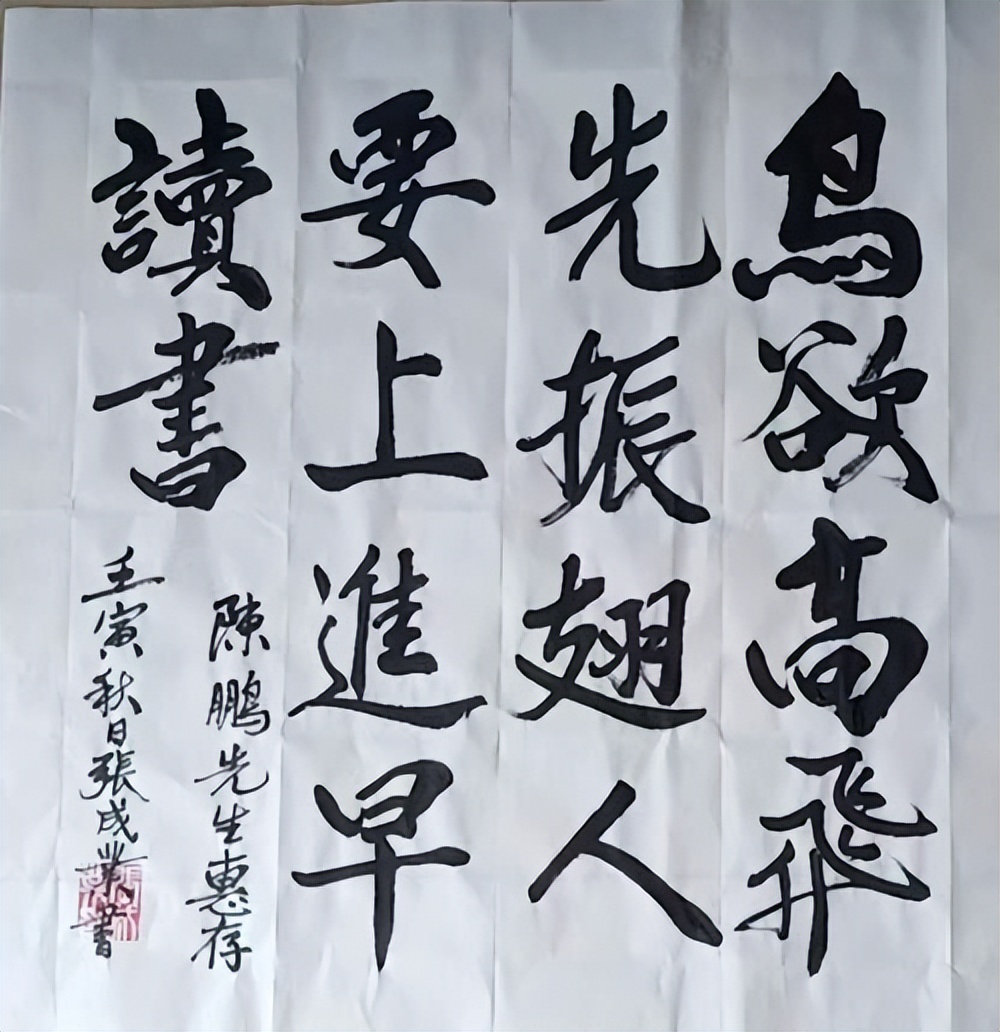 鳥欲高飛
先振翅人
要上進早
讀書
陳鵬先生惠存
壬寅秋日張成業書